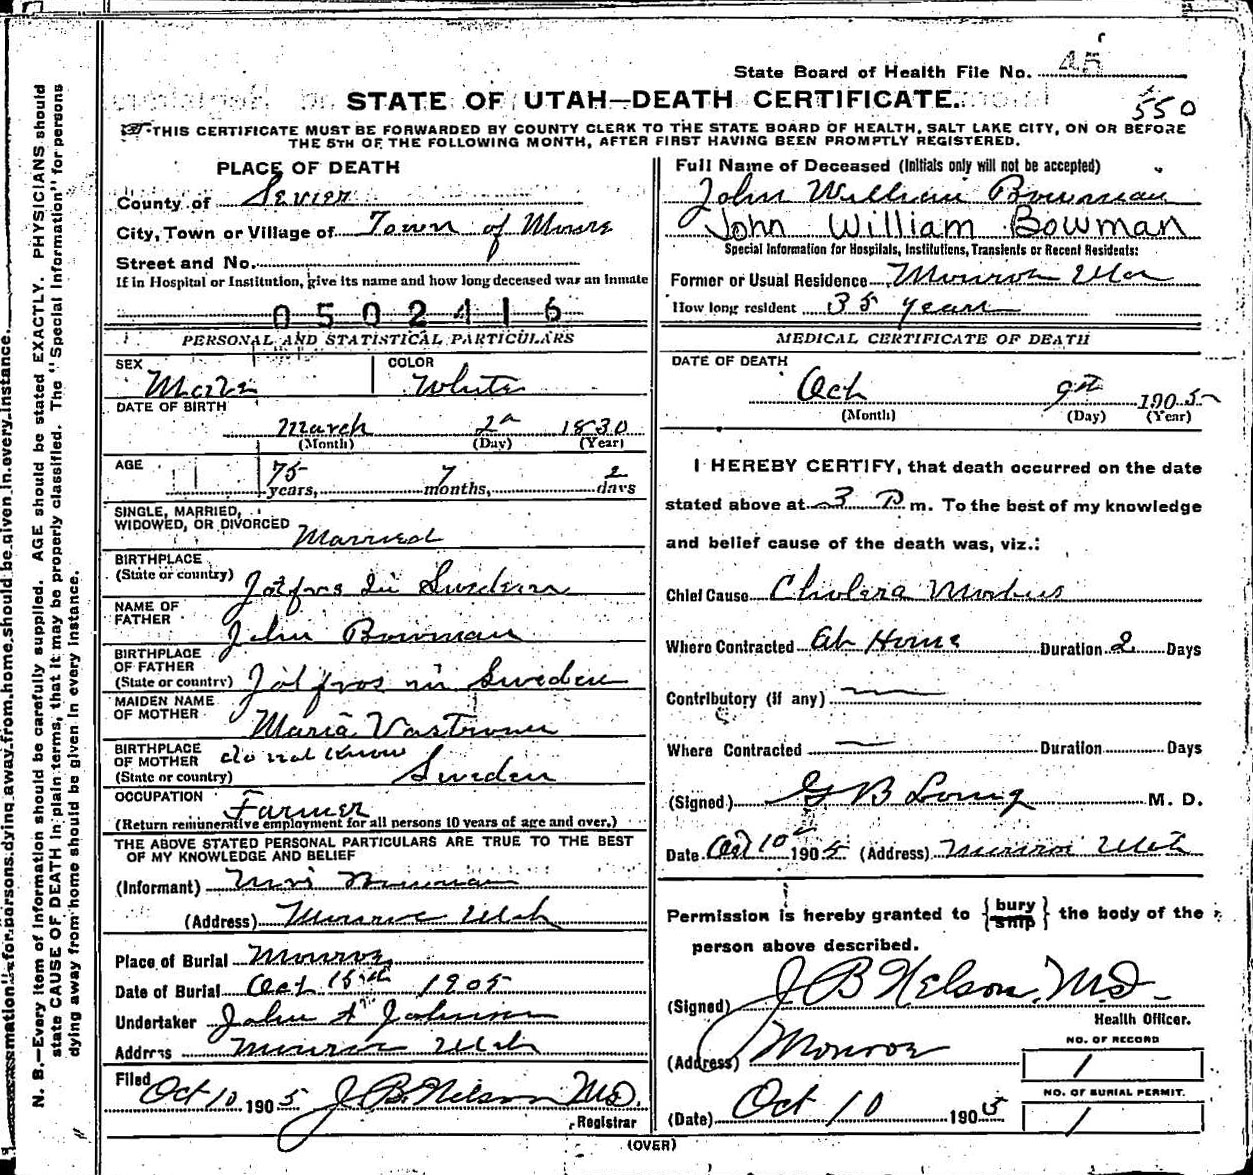 State Board of Health File No. 45
550
STATE OF UTAH—DEATH CERTIFICATE.
THIS CERTIFICATE MUST BE FORWARDED BY COUNTY CLERK TO THE STATE BOARD OF HEALTH, SALT LAKE CITY, ON OR BEFORE
THE 5TH OF THE FOLLOWING MONTH, AFTER FIRST HAVING BEEN PROMPTLY REGISTERED.
PLACE OF DEATH
County of Sevier
City, Town or Village of Town of
Street and No.
If in Hospital or Institution, give its name and how long deceased was an inmate
0502416
PERSONAL AND STATISTICAL PARTICULARS
SEX Male COLOR White
DATE OF BIRTH
March 2 1830
(Month) (Day) (Year)
AGE 75 years, 7 months, 2 days
SINGLE, MARRIED,
WIDOWED, OR DIVORCED Married
BIRTHPLACE
(State or country) Sweden
NAME OF
FATHER John Bowman
BIRTHPLACE
OF FATHER
(State or country) Sweden
MAIDEN NAME
OF MOTHER Maria
BIRTHPLACE
OF MOTHER do not know
(State or country) Sweden
OCCUPATION Farmer
(Return remunerative employment for all persons 10 years of age and over.)
THE ABOVE STATED PERSONAL PARTICULARS ARE TRUE TO THE BEST
OF MY KNOWLEDGE AND BELIEF
(Informant) Bowman
(Address) Monroe Utah
Place of Burial Monroe
Date of Burial Oct 1905
Undertaker John A Johnson
Address Monroe Utah
Filed Oct 10 1905 J B Nelson MD.
Registrar
Full Name of Deceased (Initials only will not be accepted)
John William Bowman
John William Bowman
Special Information for Hospitals, Institutions, Transients or Recent Residents:
Former or Usual Residence Monroe Utah
How long resident 35 years
MEDICAL CERTIFICATE OF DEATH
DATE OF DEATH
Oct 9th 1905
(Month) (Day) (Year)
I HEREBY CERTIFY, that death occurred on the date
stated above at 3 P m. To the best of my knowledge
and belief cause of the death was, viz.:
Chief Cause Cholera Morbus
Where Contracted At Home Duration 2 Days
Contributory (if any) —
Where Contracted — Duration Days
(Signed) G B Long M. D.
Date Oct 10 1905 (Address) Monroe Utah
Permission is hereby granted to {bury ship} the body of the
person above described.
(Signed) J B Nelson, M.D.
Health Officer.
(Address) Monroe
NO. OF RECORD
1
(Date) Oct 10 1905
NO. OF BURIAL PERMIT.
1
(OVER)
N. B.—Every item of information should be carefully supplied. AGE should be stated EXACTLY. PHYSICIANS should
state CAUSE OF DEATH in plain terms, that it may be properly classified. The "Special Information" for persons
dying away from home should be given in every instance.